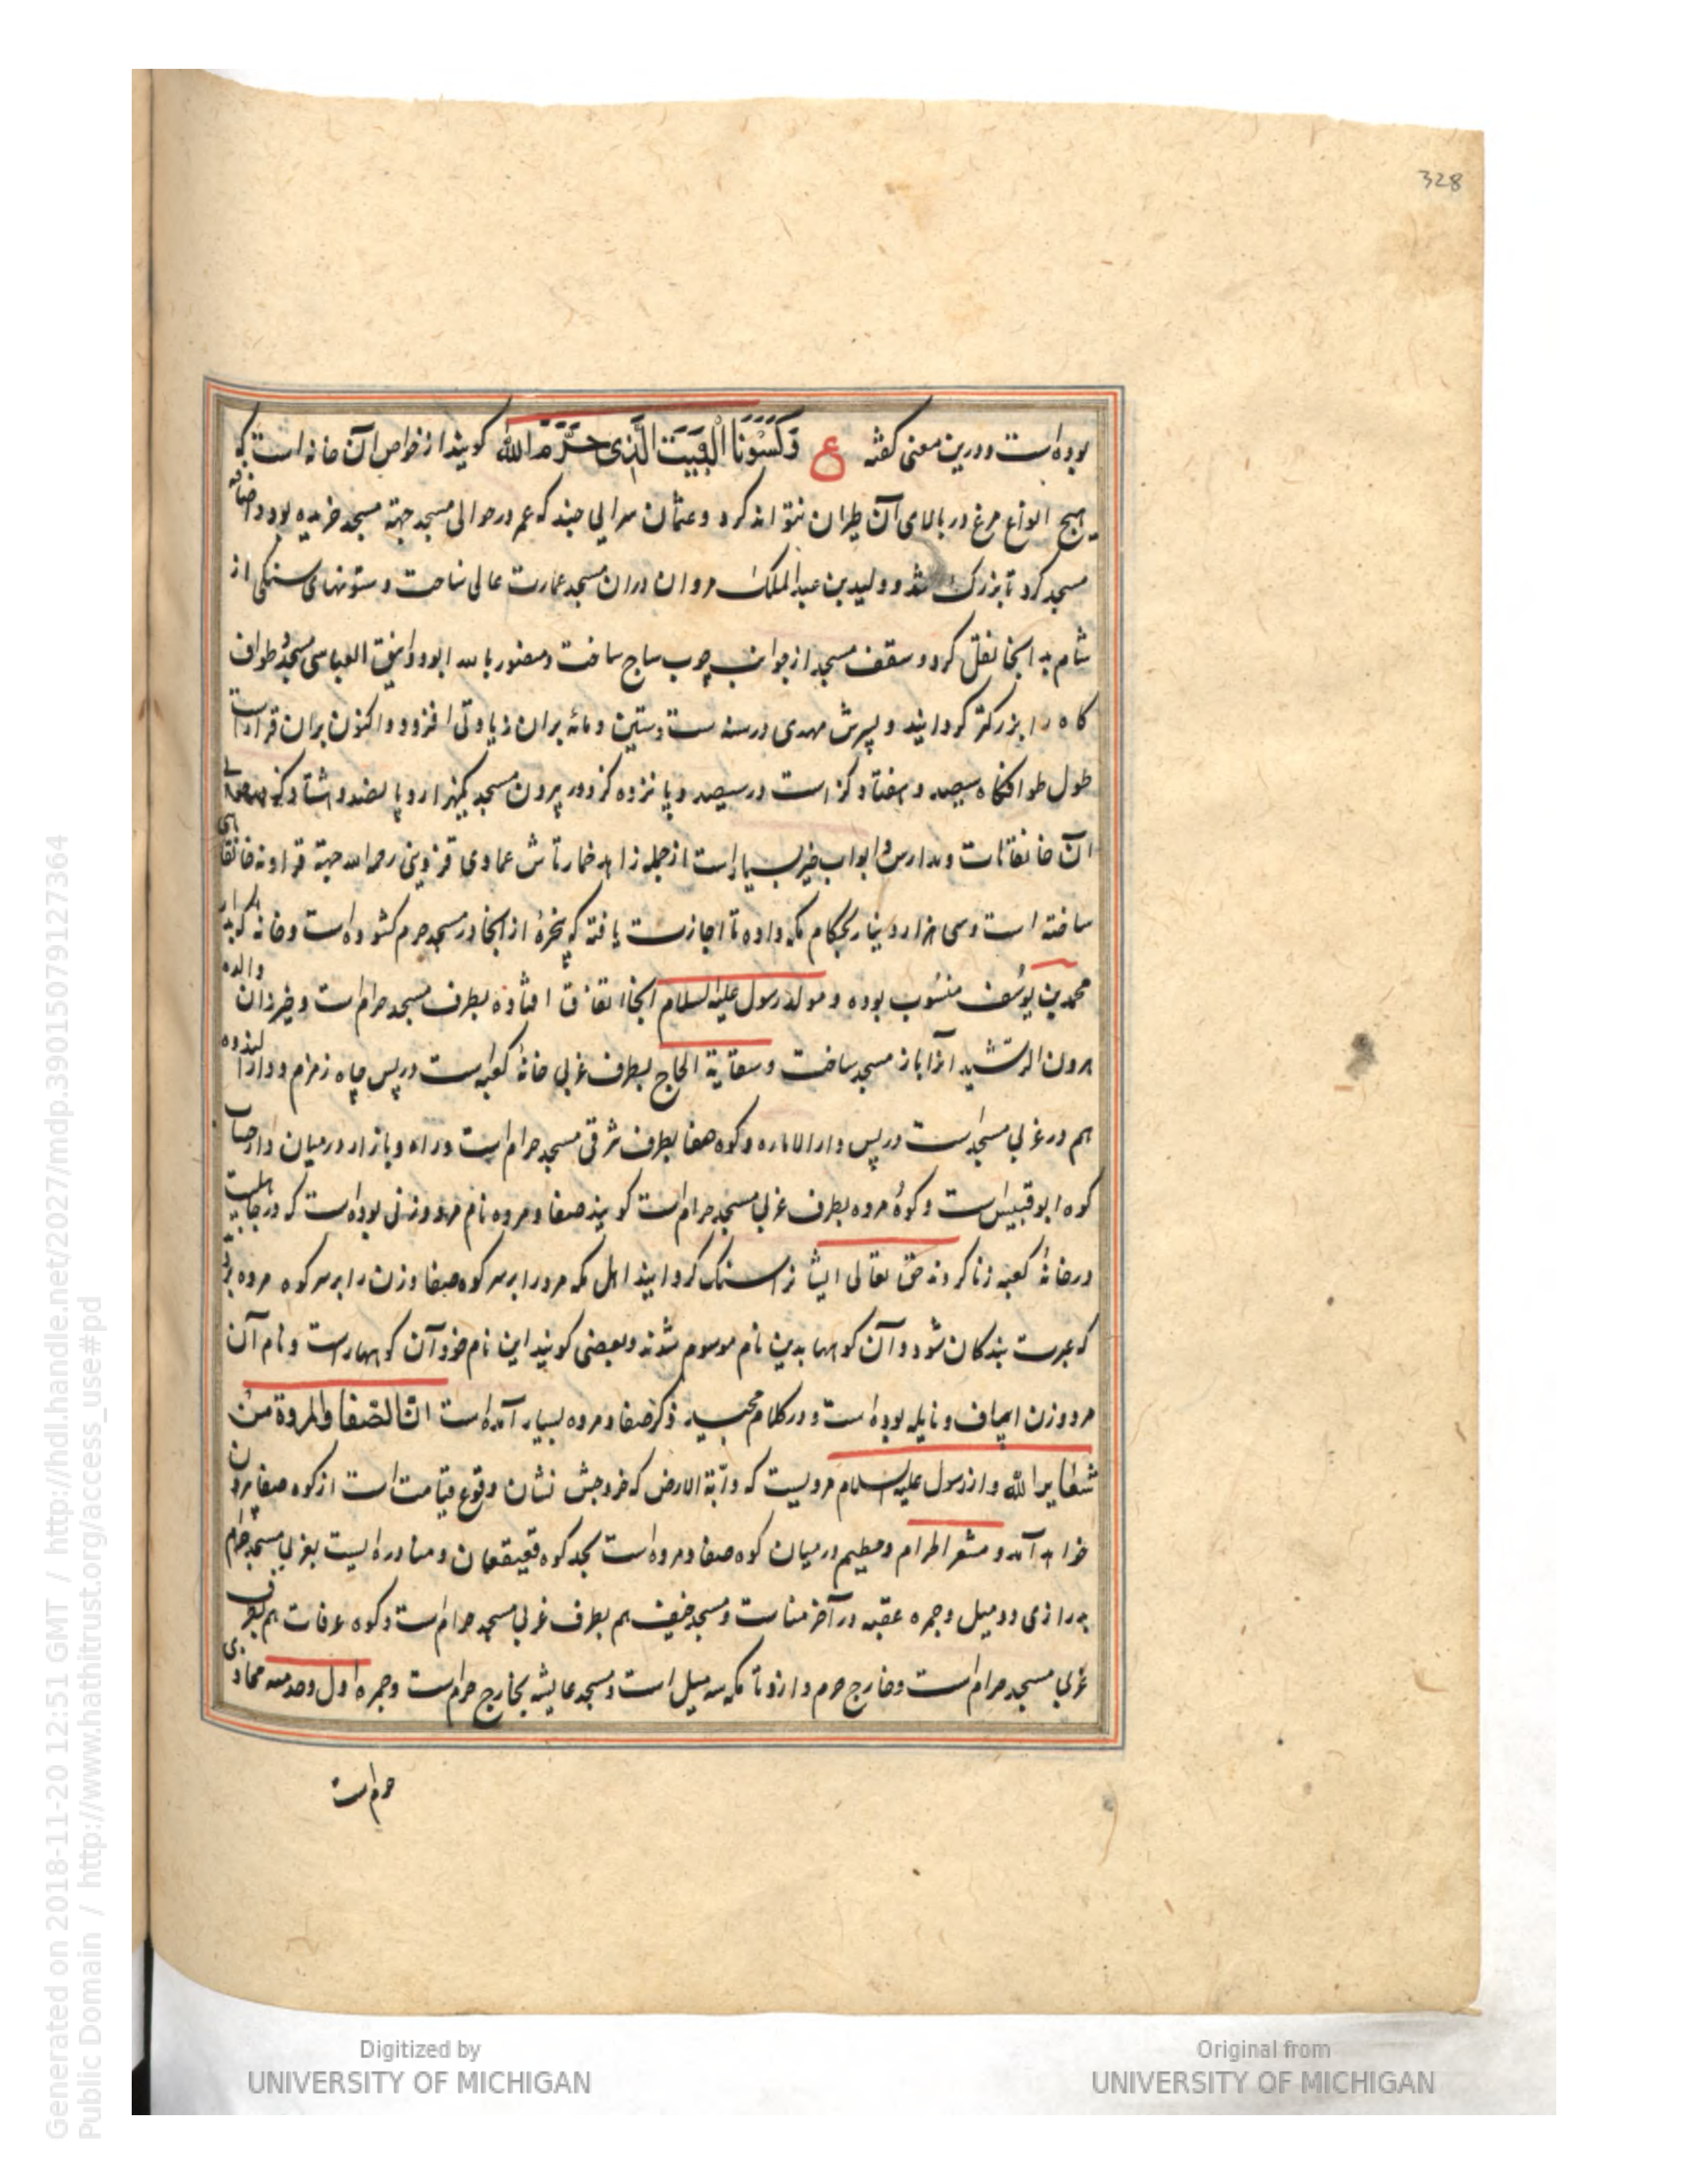 328
بوده است و درین معنی گفته ع وَكَسَوْنَا الْبَيْتَ الَّذِى حَرَّمَ اللّٰه کویند از خواص آن خانه است که
هیچ انواع مرغ در بالای آن طیران نتواند کرد و عثمان سرایی چند که عمر در حوالی مسجد جهة مسجد خریده بود اضافه
مسجد کرد تا بزرک شد و ولید بن عبد الملک مروان در ان مسجد عمارت عالی ساخت و ستونهای سنکی از
شام به انجا نقل کرد و سقف مسجد از جوانب چوب ساج ساخت و منصور بالله ابو دوانیق العباسی مسجد و طواف
کاه را بزرکتر کردانید و پسرش مهدی در سنه ست وستین ومائه بران زیادتی افزود و اکنون بران قرار است
طول طوافکاه سیصد و هفتاد کز است در سیصد و پانزده کز و دور بیرون مسجد یکهزار و پانصد و هشتاد کز
آن خانقاهات و مدارس و ابواب خیر بسیار است از جمله زاهد خمارتاش عمادی قزوینی رحمه الله جهة قزاونه خانقاهی
ساخته است و سی هزار دینار بحکام مکه داده تا اجازت یافته که پنجرهٔ از انجا در مسجد حرم کشوده است و خانه که به
محمد بن یوسف منسوب بوده و مولد رسول علیه السلام انجا اتفاق افتاده بطرف مسجد حرام است و خیزران والده
هرون الرشید آنرا باز مسجد ساخت و سقایة الحاج بطرف غربی خانهٔ کعبه است در پس چاه زمزم و دار الندوه
هم در غربی مسجد است در پس دار الاماره و کوه صفا بطرف شرقی مسجد حرام است و راه و بازار در میان دارد
کوه ابو قبیس است و کوه مروه بطرف غربی مسجد حرام است کویند صفا و مروه نام مرد و زنی بوده است که در جاهلیت
در خانهٔ کعبه زنا کردند حق تعالی ایشانرا سنک کردانید اهل مکه مرد را بر سر کوه صفا و زن را بر سر کوه مروه
که عبرت بندکان شود و آن کوهها بدین نام موسوم شدند و بعضی کویند این نام خود آن کوهها راست و نام آن
مرد و زن اساف و نایله بوده است و در کلام مجید ذکر صفا و مروه بسیار آمده است ان الصفا والمروة من
شعایر الله و از رسول علیه السلام مرویست که دابة الارض که خروجش نشان وقوع قیامت است از کوه صفا بیرون
خواهد آمد و مشعر الحرام و حطیم در میان کوه صفا و مروه است بحد کوه قعیقعان و منا دره ایست بغربی مسجد حرام
بدرازی دو میل و جمره عقبه در آخر مناست و مسجد خیف هم بطرف غربی مسجد حرام است و کوه عرفات هم بطرف
غربی مسجد حرام است و خارج حرم و ازو تا مکه سه میل است و مسجد عایشه بخارج حرم است و جمره اول محاذی
حرم است
Generated on 2018-11-20 12:51 GMT / http://hdl.handle.net/2027/mdp.39015079127364
Public Domain / http://www.hathitrust.org/access_use#pd
Digitized by
UNIVERSITY OF MICHIGAN
Original from
UNIVERSITY OF MICHIGAN